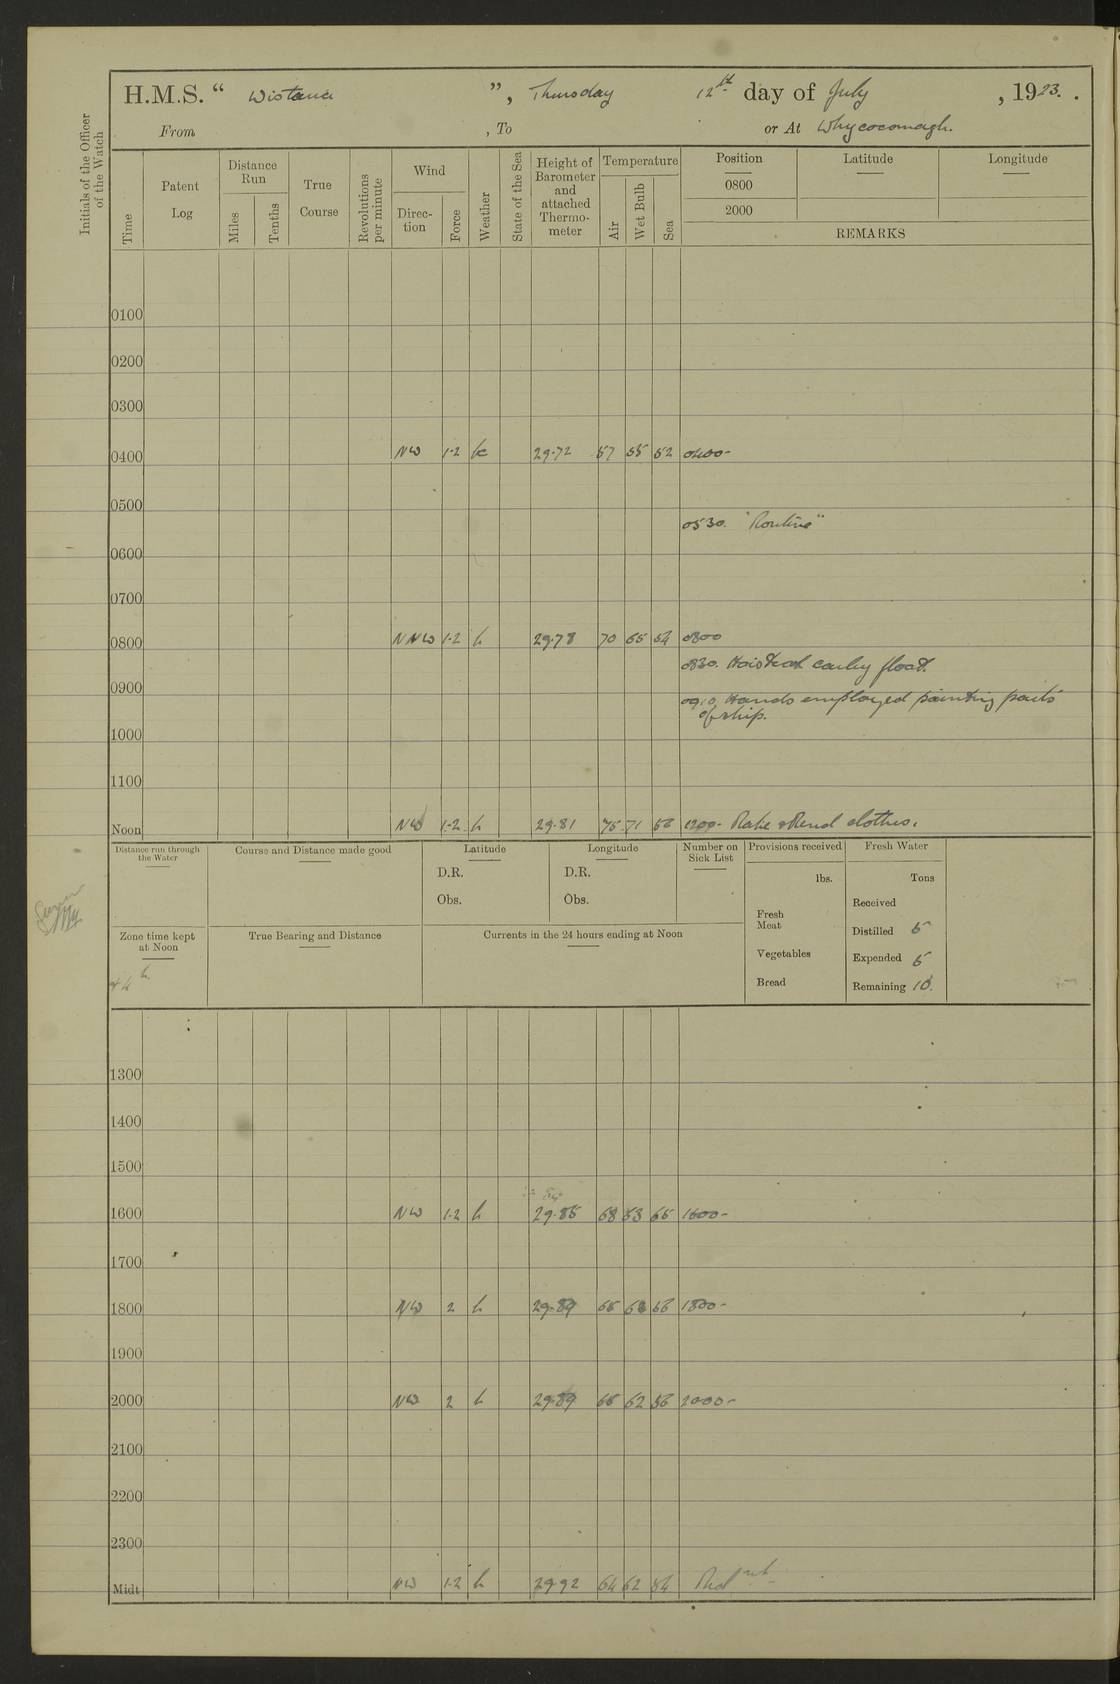 H.M.S. “ Wistaria ”, Thursday 12th day of July, 1923.
From , To or At Whycocomagh.
Initials of the Officer of the Watch
Time
Patent Log
Distance Run
Miles
Tenths
True Course
Revolutions per minute
Wind
Direction
Force
Weather
State of the Sea
Height of Barometer and attached Thermometer
Temperature
Air
Wet Bulb
Sea
Position
0800
2000
Latitude
Longitude
REMARKS
0100
0200
0300
0400 NW 1-2 29.72 57 55 52 0400-
0500
0530. "Routine"
0600
0700
0800 NNW 1-2 b 29.78 70 65 54 0800
0830. Hoisted carley float.
0900
0910 Hands employed painting parts
of ship.
1000
1100
Noon NW 1-2 b 29.81 75 71 56 1200- Make & Mend clothes.
Distance run through the Water
Course and Distance made good
Latitude
D.R.
Obs.
Longitude
D.R.
Obs.
Number on Sick List
Provisions received
lbs.
Fresh Meat
Vegetables
Bread
Fresh Water
Tons
Received
Distilled 5
Expended 5
Remaining 10.
Zone time kept at Noon
+4 h
True Bearing and Distance
Currents in the 24 hours ending at Noon
1300
1400
1500
1600 NW 1-2 b 29.85 68 63 55 1600-
1700
1800 NW 2 b 29.89 66 63 56 1800-
1900
2000 NW 2 b 29.89 66 62 56 2000-
2100
2200
2300
Midt NW 1-2 b 29.92 64 62 54